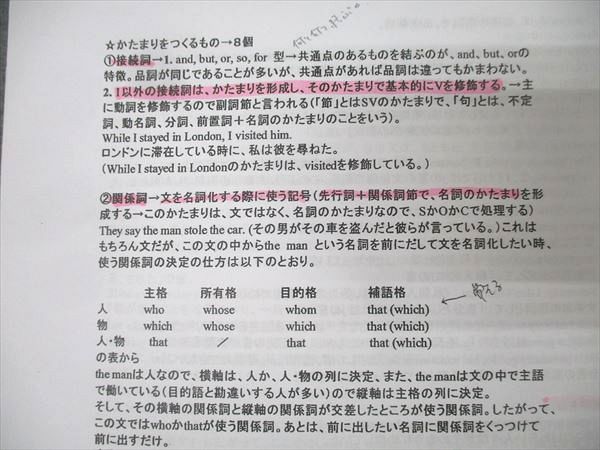 ☆かたまりをつくるもの→8個
①接続詞→1. and, but, or, so, for 型→共通点のあるものを結ぶのが、and、but、orの
特徴。品詞が同じであることが多いが、共通点があれば品詞は違ってもかまわない。
2. 1以外の接続詞は、かたまりを形成し、そのかたまりで基本的にVを修飾する。→主
に動詞を修飾するので副詞節と言われる(「節」とはSVのかたまりで、「句」とは、不定
詞、動名詞、分詞、前置詞＋名詞のかたまりのことをいう)。
While I stayed in London, I visited him.
ロンドンに滞在している時に、私は彼を尋ねた。
(While I stayed in Londonのかたまりは、visitedを修飾している。)
②関係詞→文を名詞化する際に使う記号(先行詞＋関係詞節で、名詞のかたまりを形
成する→このかたまりは、文ではなく、名詞のかたまりなので、SかOかCで処理する)
They say the man stole the car. (その男がその車を盗んだと彼らが言っている。)これは
もちろん文だが、この文の中からthe man という名詞を前にだして文を名詞化したい時、
使う関係詞の決定の仕方は以下のとおり。
主格 所有格 目的格 補語格
人 who whose whom that (which)
物 which whose which that (which)
人・物 that ／ that that (which)
の表から
the manは人なので、横軸は、人か、人・物の列に決定、また、the manは文の中で主語
で働いている(目的語と勘違いする人が多い)ので縦軸は主格の列に決定。
そして、その横軸の関係詞と縦軸の関係詞が交差したところが使う関係詞。したがって、
この文ではwhoかthatが使う関係詞。あとは、前に出したい名詞に関係詞をくっつけて
前に出すだけ。